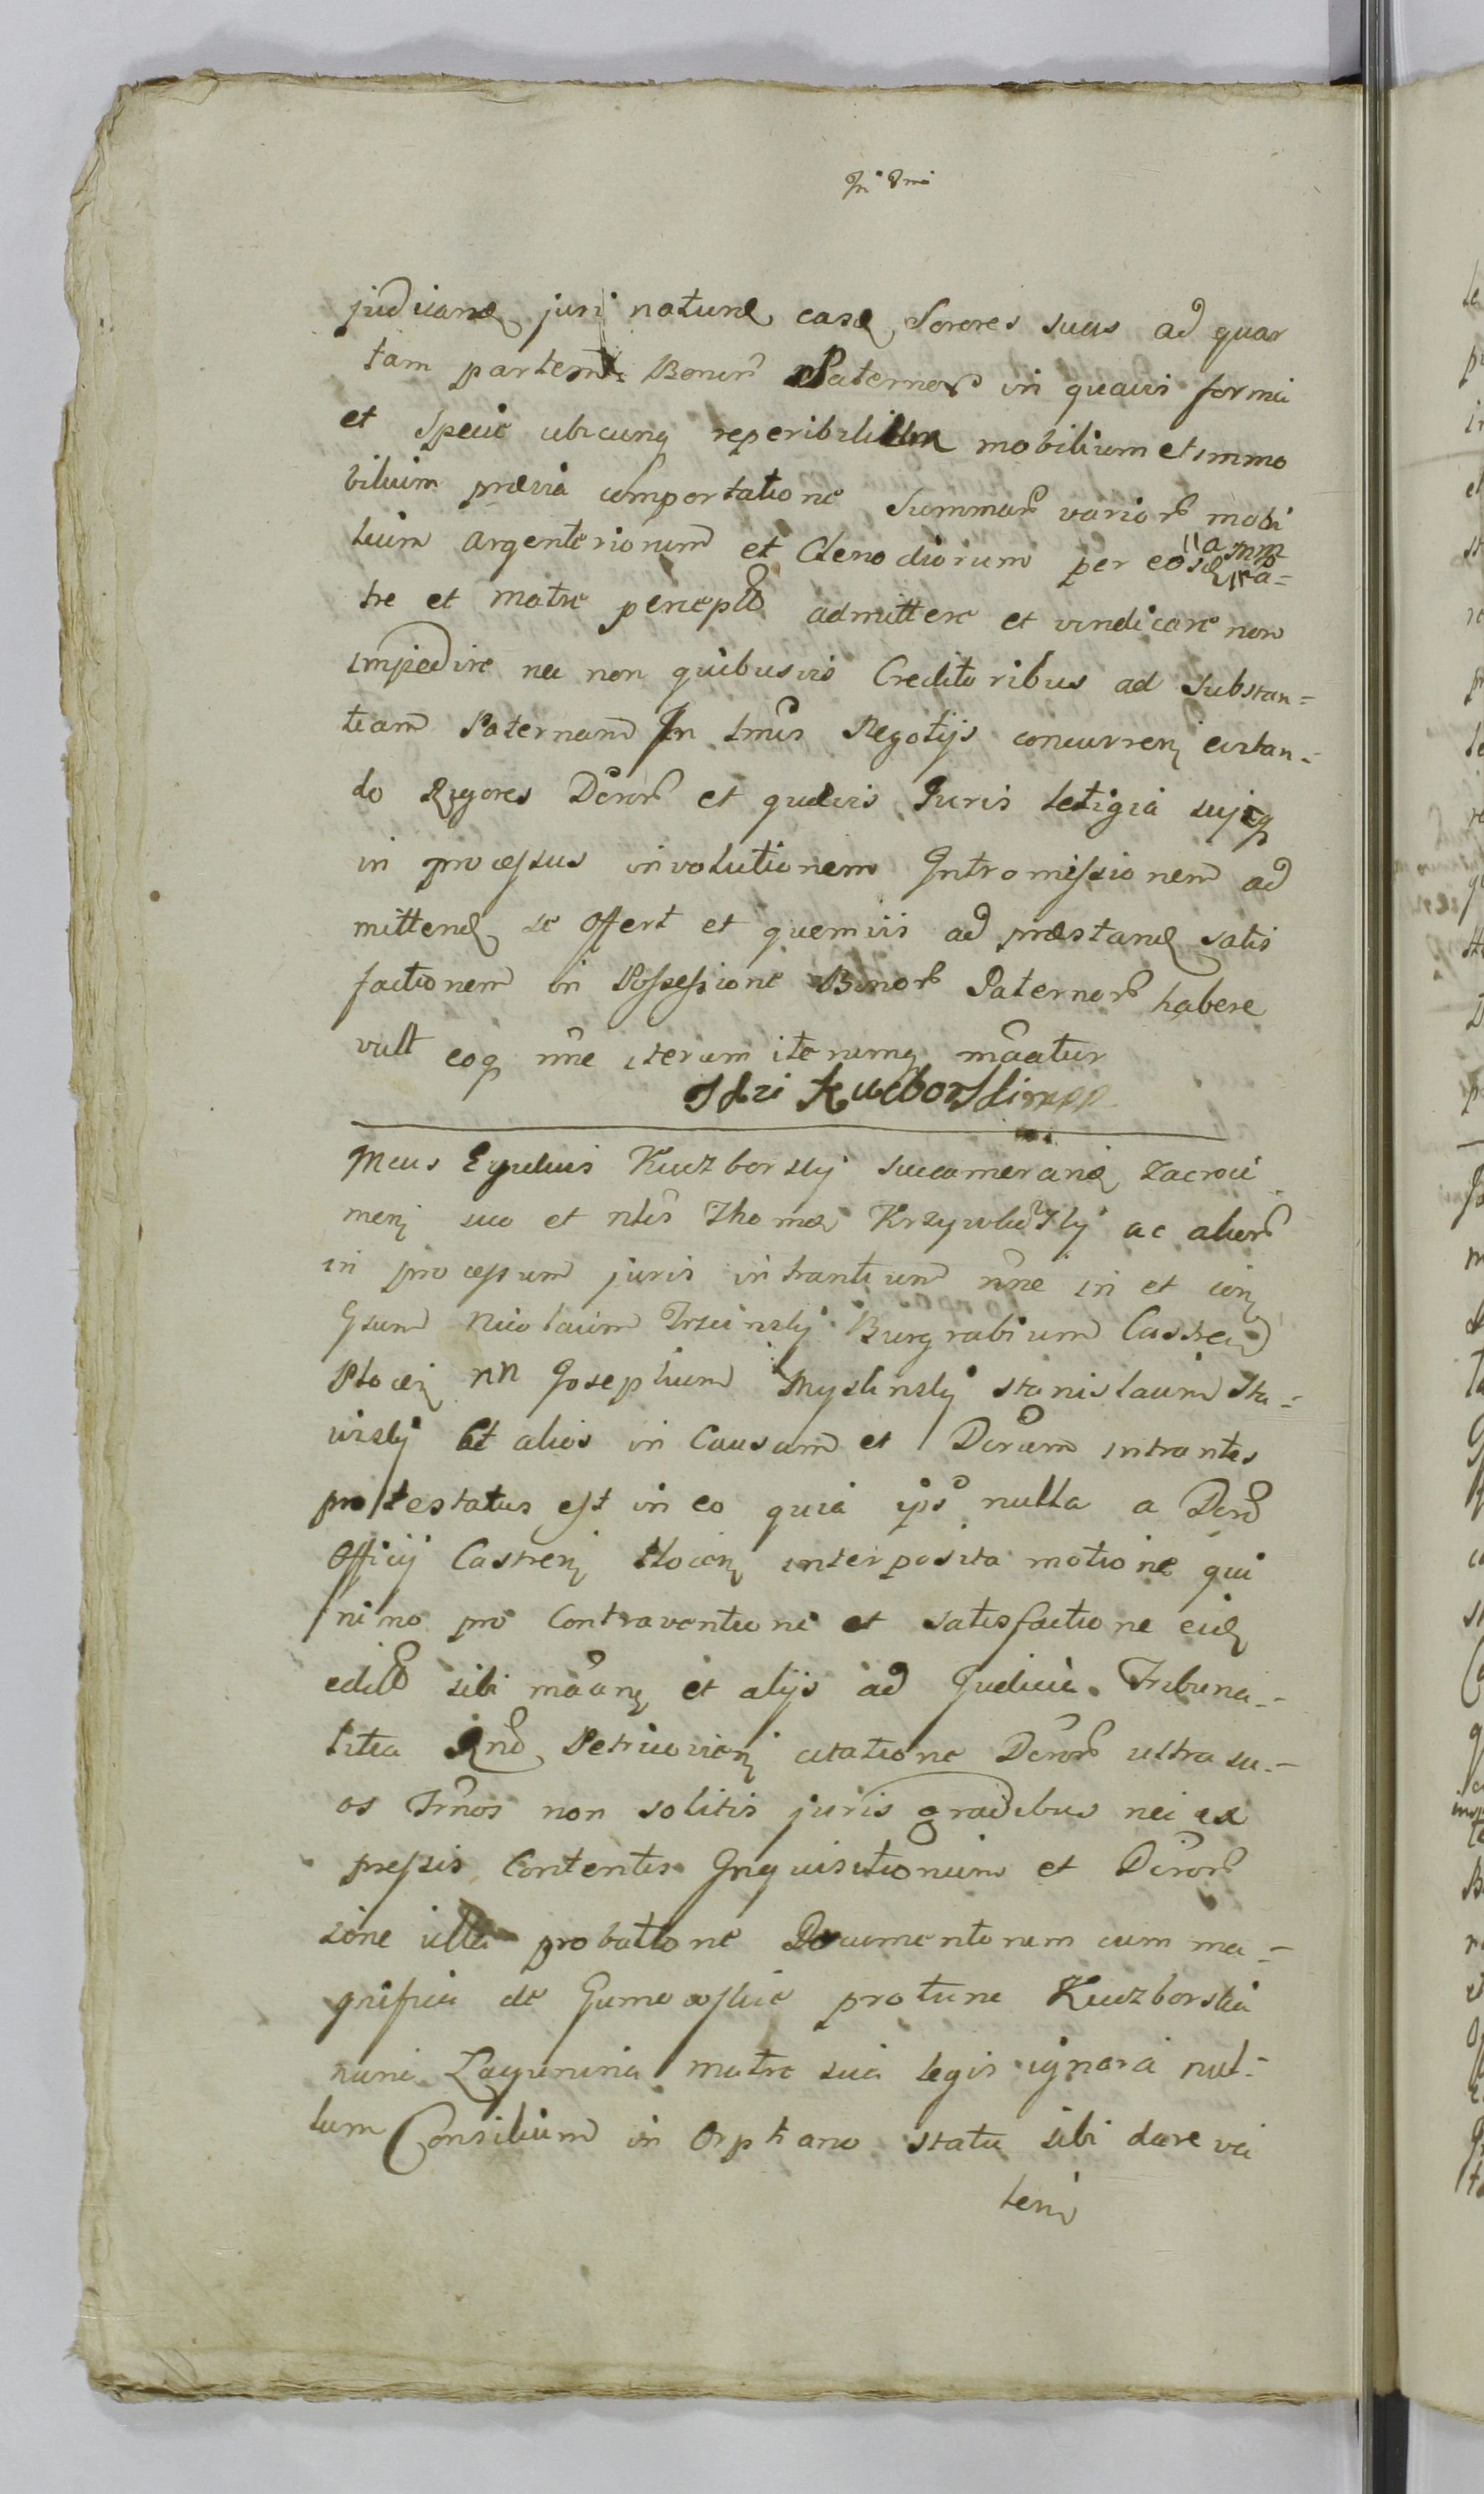 judicand jure naturæ easd Sorores suas ad quar
tam partem Bonor Paternor in quavis forma
et Specie ubicunq reperibilium mobilium et immo
bilium prævia comportatione Summar varior mobi
lium argenteriorum et Clenodiorum per eosd a
Pa-
tre et matre percept admittere et vindicare non
impedire nec non quibusvis Creditoribus ad Substan-
tiam Paternam In Negotijs concurren evitan-
do Rigores Decror et quævis Juris letigia sujq
in processus involutionem Intromissionem ad
mittend se offert et quemvis ad præstand satis
factionem in Possessione Bonor Paternor habere
vult eoq nne iterum iterumq maatur
Kuczborski mpp
Mcus Egidius Kuczborskj Succamerarid Zacroci
men suo et nbis Thomæ ac alior
in processum juris intrantium nne in et con
Gsum Nicolaum Trzcinskj Burgrabium Castren
Plocen nn Josephum Myslinskj Stanislaum Sta-
wiskj et alios in Causam et Decrum intrantes
protestatus est in eo quia ipse nulla a Decro
Officij Castren Plocen interposita motione qui
nimo pro Contraventione et satisfactione eid
edito sibi maan et alijs ad Judicia Tribuna-
litia Rni Petricovien citatione Decror ultra su-
os Trnos non solitis juris gradibus nec ex
pressis Contentis Inquisitionum et Decror
sine ulla probatione Documentorum cum ma-
gnifica de protunc Kuczborska
nunc matre sua legis ignara nul-
lum Consilium in Orphano statu sibi dare va
len